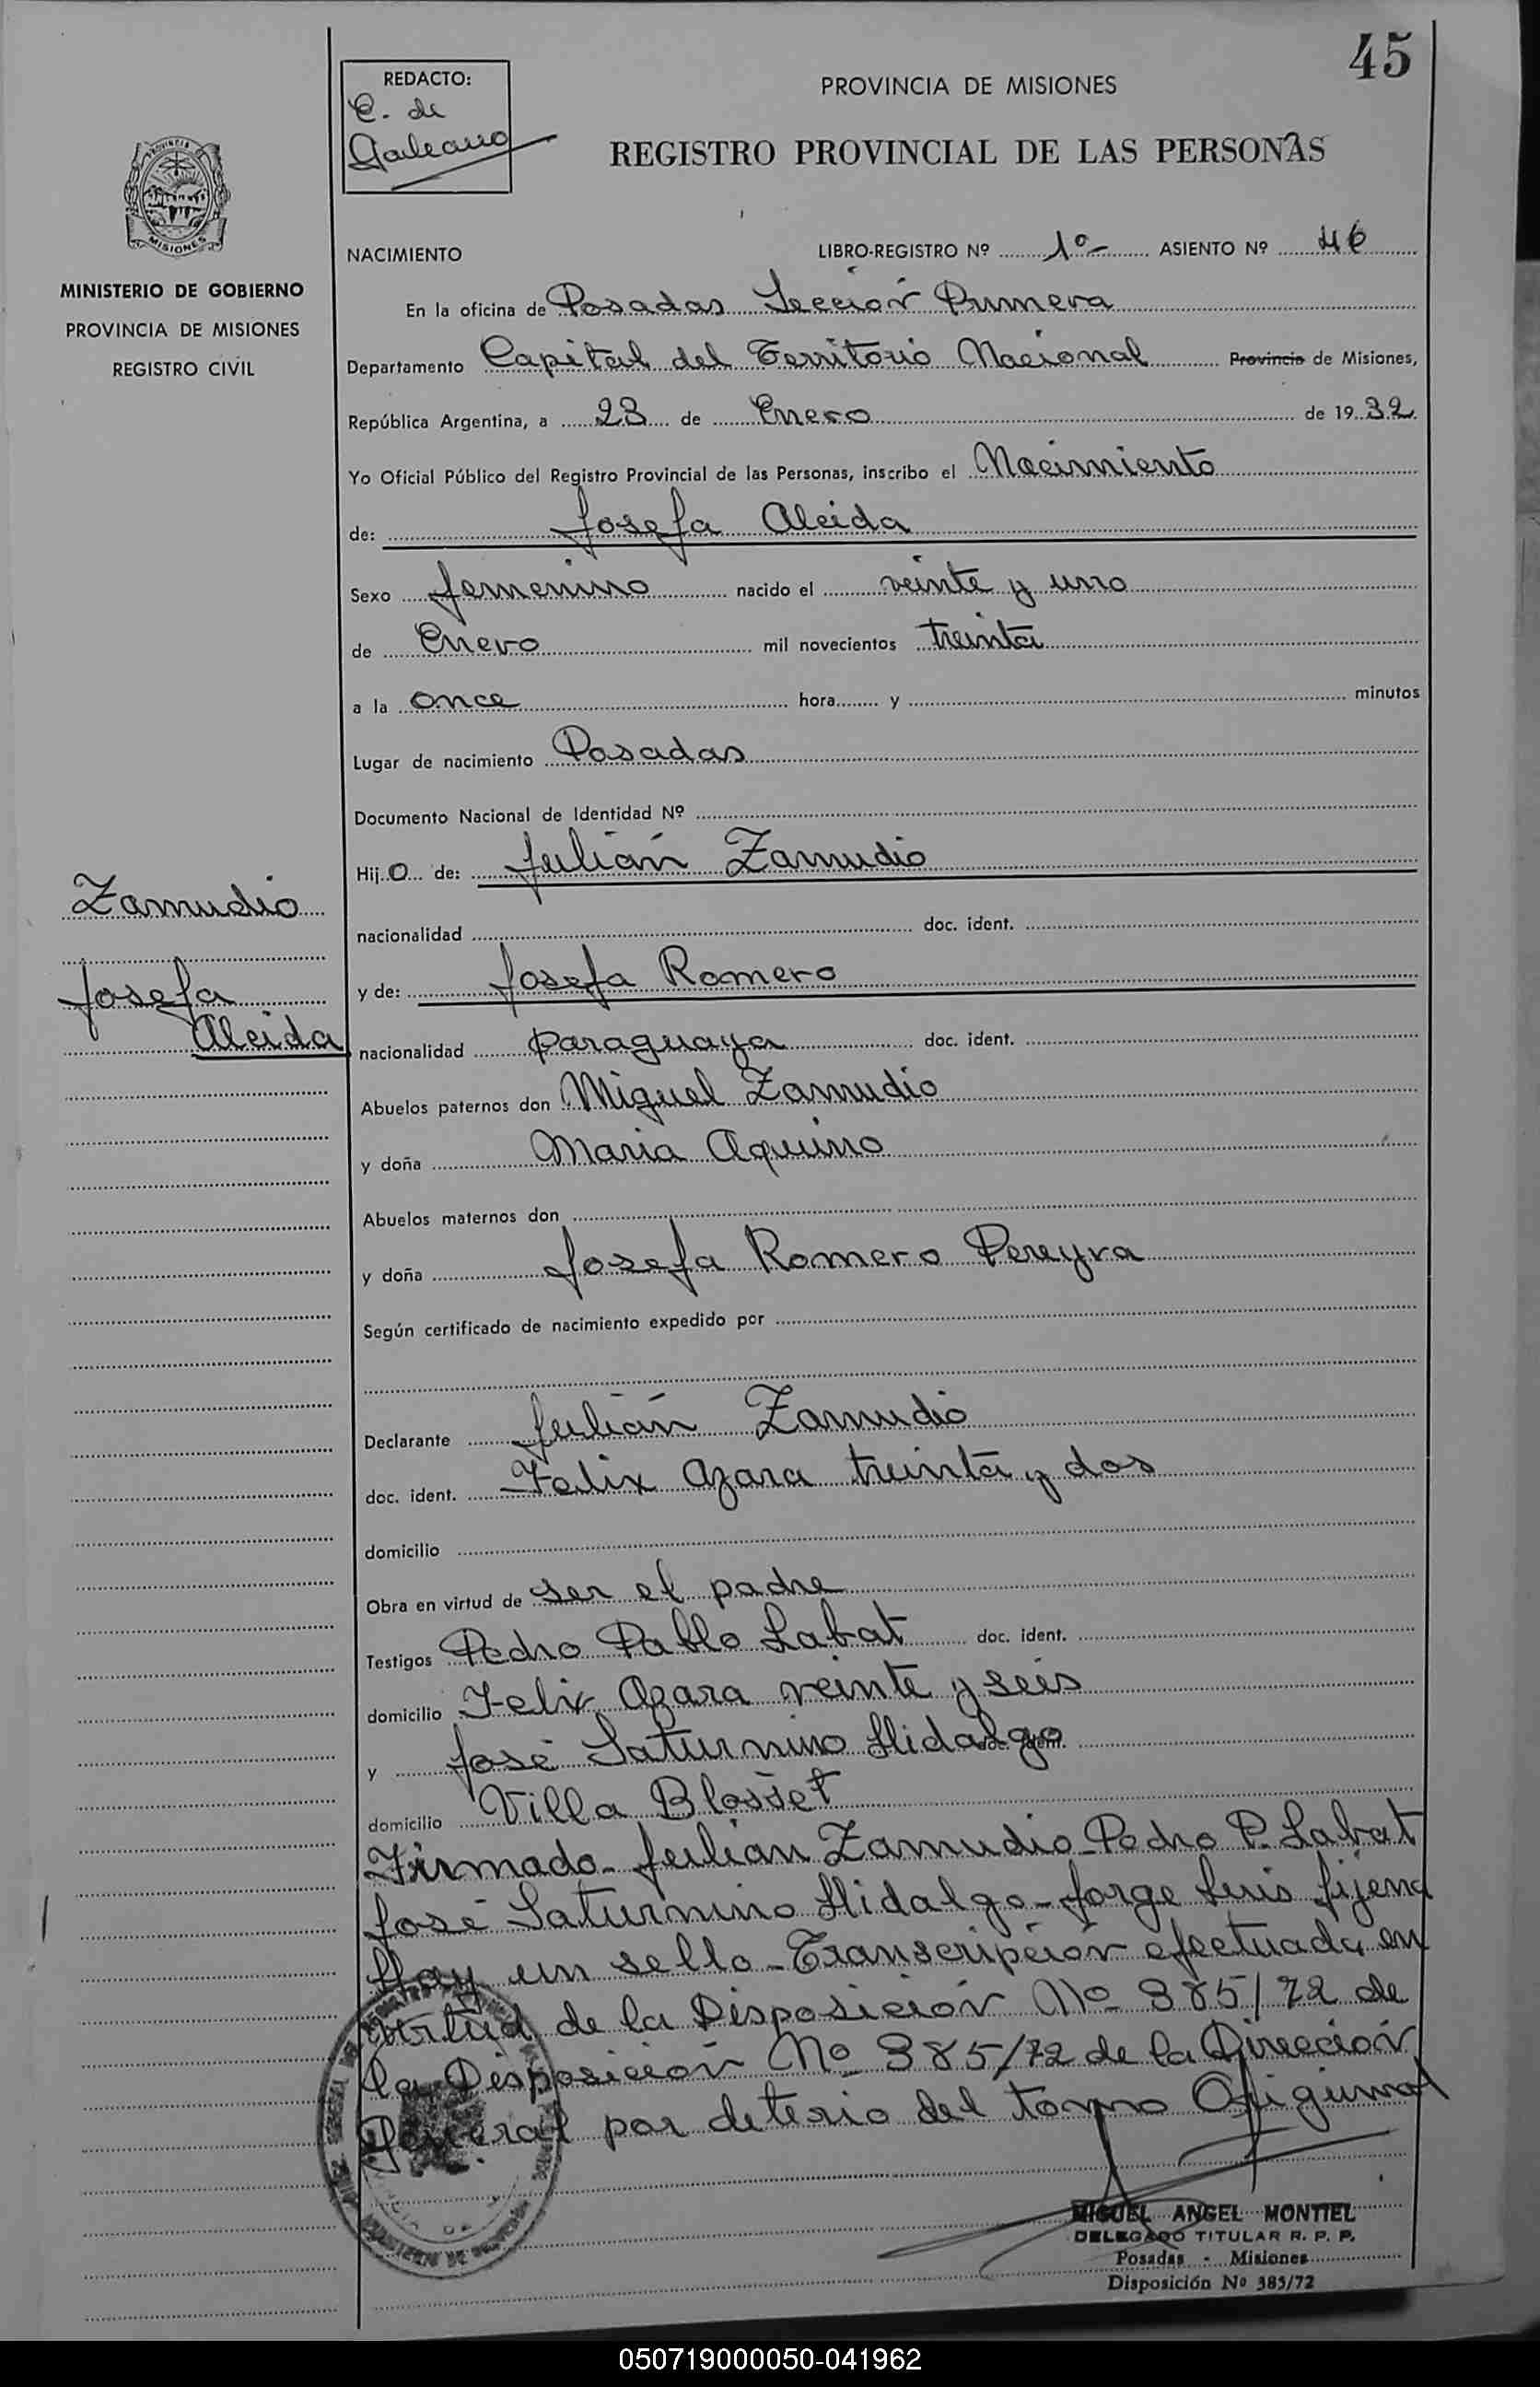 45
REDACTO:
C. de
Galeano
PROVINCIA DE MISIONES
REGISTRO PROVINCIAL DE LAS PERSONAS
MISIONES
MINISTERIO DE GOBIERNO
PROVINCIA DE MISIONES
REGISTRO CIVIL
NACIMIENTO LIBRO-REGISTRO Nº 1º ASIENTO Nº 46
En la oficina de Posadas Sección Primera
Departamento Capital del Territorio Nacional Provincia de Misiones,
República Argentina, a 23 de Enero de 1932
Yo Oficial Público del Registro Provincial de las Personas, inscribo el Nacimiento
de: Josefa Aleida
Sexo femenino nacido el veinte y uno
de Enero mil novecientos treinta
a la once hora y minutos
Lugar de nacimiento Posadas
Documento Nacional de Identidad Nº
Hijo de: Julián Zamudio
Zamudio
nacionalidad doc. ident.
Josefa
y de: Josefa Romero
Aleida
nacionalidad paraguaya doc. ident.
Abuelos paternos don Miguel Zamudio
y doña Maria Aquino
Abuelos maternos don
y doña Josefa Romero Pereyra
Según certificado de nacimiento expedido por
Declarante Julián Zamudio
doc. ident. Felix Azara treinta y dos
domicilio
Obra en virtud de ser el padre
Testigos Pedro Pablo Labat doc. ident.
domicilio Felix Azara veinte y seis
y José Saturnino Hidalgo doc. ident.
domicilio Villa Blosset
Firmado- Julian Zamudio- Pedro P. Labat
José Saturnino Hidalgo- Jorge Luis Jijena
Hay un sello- Transcripción efectuada en
virtud de la Disposición Nº 385/72 de
la Disposición Nº 385/72 de la Dirección
General por deterio del tomo Original
MIGUEL ANGEL MONTIEL
DELEGADO TITULAR R. P. P.
Posadas - Misiones
Disposición Nº 385/72
050719000050-041962